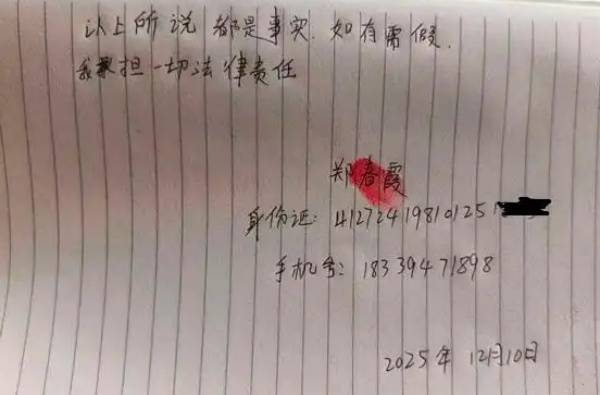 以上所说都是事实.如有需假.
我承担一切法律责任
郑春霞
身份证:41272419810125
手机号:18339471898
2025年12月10日